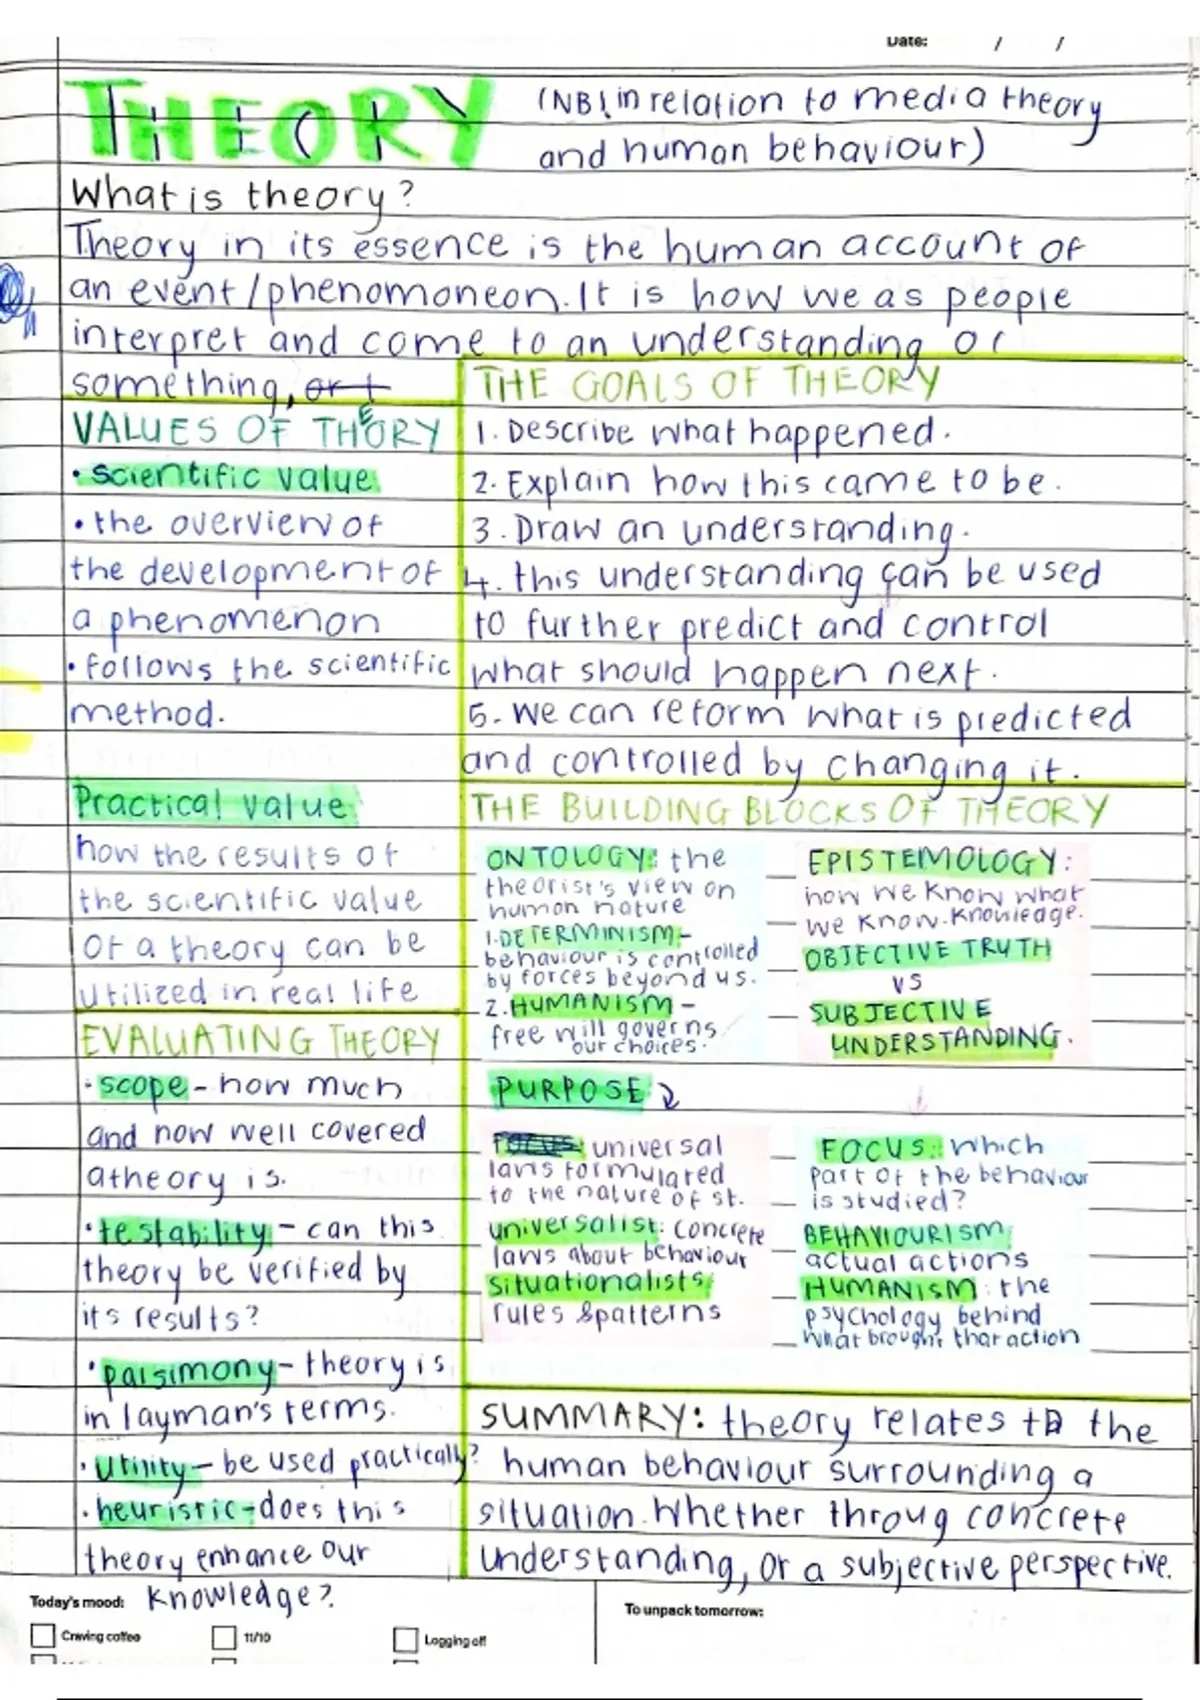 Date: / /
THEORY
(NB! in relation to media theory
and human behaviour)
What is theory?
Theory in its essence is the human account of
an event/phenomoneon. It is how we as people
interpret and come to an understanding of
something, or t
VALUES OF THEORY
• scientific value
• the overview of
the development of
a phenomenon
• follows the scientific
method.
Practical value
how the results of
the scientific value
of a theory can be
utilized in real life
EVALUATING THEORY
• scope - how much
and how well covered
a theory is.
• testability - can this
theory be verified by
its results?
• parsimony - theory is
in layman's terms.
• utility - be used practically?
• heuristic - does this
theory enhance our
knowledge?
THE GOALS OF THEORY
1. Describe what happened.
2. Explain how this came to be.
3. Draw an understanding.
4. this understanding can be used
to further predict and control
what should happen next.
5. we can reform what is predicted
and controlled by changing it.
THE BUILDING BLOCKS OF THEORY
ONTOLOGY: the
theorist's view on
human nature
1. DETERMINISM -
behaviour is controlled
by forces beyond us.
2. HUMANISM -
free will governs
our choices.
EPISTEMOLOGY:
how we know what
we know. Knowledge.
OBJECTIVE TRUTH
VS
SUBJECTIVE
UNDERSTANDING.
PURPOSE
FOCUS: universal
laws formulated
to the nature of st.
universalist: concrete
laws about behaviour
situationalists:
rules & patterns
FOCUS: which
part of the behaviour
is studied?
BEHAVIOURISM:
actual actions
HUMANISM: the
psychology behind
what brought that action
SUMMARY: theory relates to the
human behaviour surrounding a
situation. Whether throug concrete
understanding, or a subjective perspective.
Today's mood:
Craving coffee
11/10
Logging off
To unpack tomorrow: